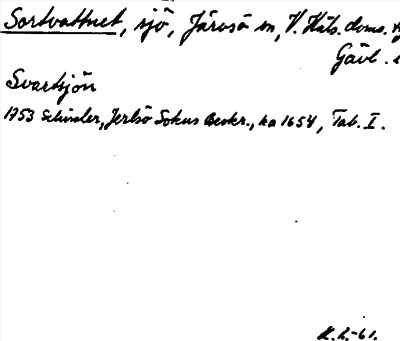 Sortvattnet, sjö, Järvsö sn, V. Häls. doms.
Gävl.
Svartsjön
1753 Schissler, Jerfsö Sokns Beskr., ka 1654, Tab. I.
K.L.-61.